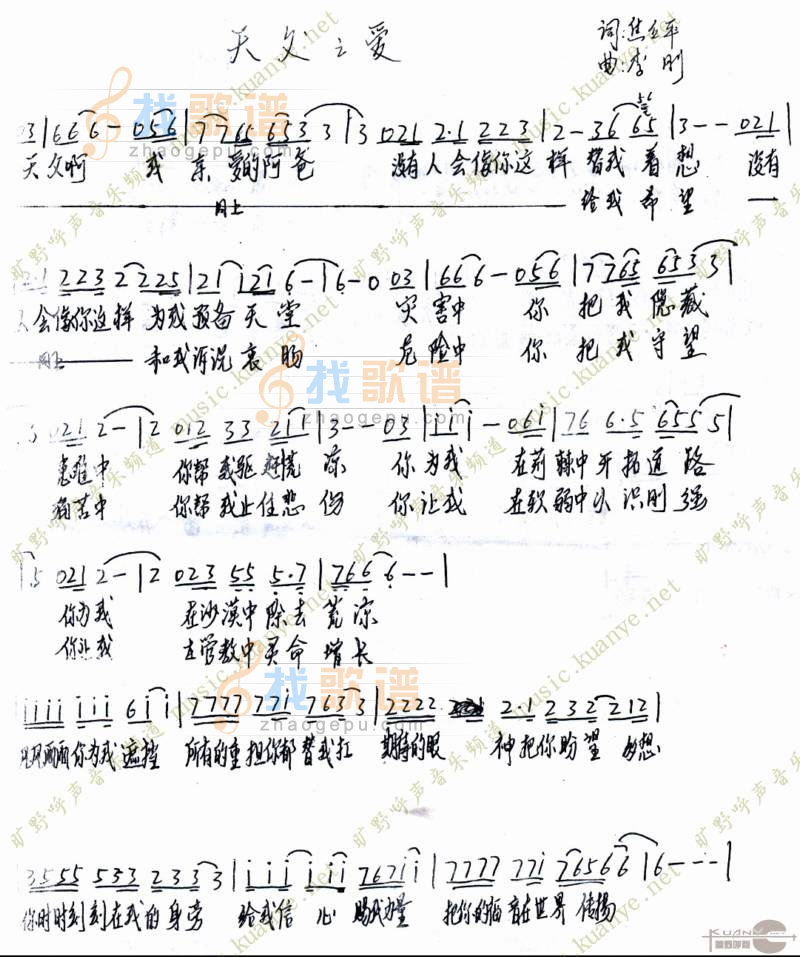 天父之爱
词:焦
曲:李刚
03|666-056|7766 6533|3 021 2·1 223|2-36 65|3--021|
天父啊 我亲爱的阿爸 没有人会像你这样替我着想 没有
同上 给我希望
223 2225|21 121 6-|6-0 03|666-056|7765 6533|
会像你这样 为我预备天堂 灾害中 你把我隐藏
同上 和我诉说衷肠 危险中 你把我守望
021 2-|2 012 33 211|3--03|111-061|76 6·5 6555|
患难中 你帮我驱赶慌 你为我 在荆棘中开拓道路
痛苦中 你帮我止住悲伤 你让我 在软弱中认识刚强
5 021 2-|2 023 55 5·7|766 6--|
你为我 在沙漠中除去荒凉
你让我 在管教中灵命增长
1111 111 611|7777 771 7633|2222 2·1 232 2212|
你为我遮挡 所有的重担你都替我扛 期待的眼 神把你盼望
3555 533 2333|111 111 76711|7777 771 76566|6---|
你时时刻刻在我的身旁 给我信心 赐我力量 把你的福音在世界传扬
找歌谱
zhaogepu.com
旷野呼声音乐频道 music.kuanye.net
KUANYE
旷野呼声